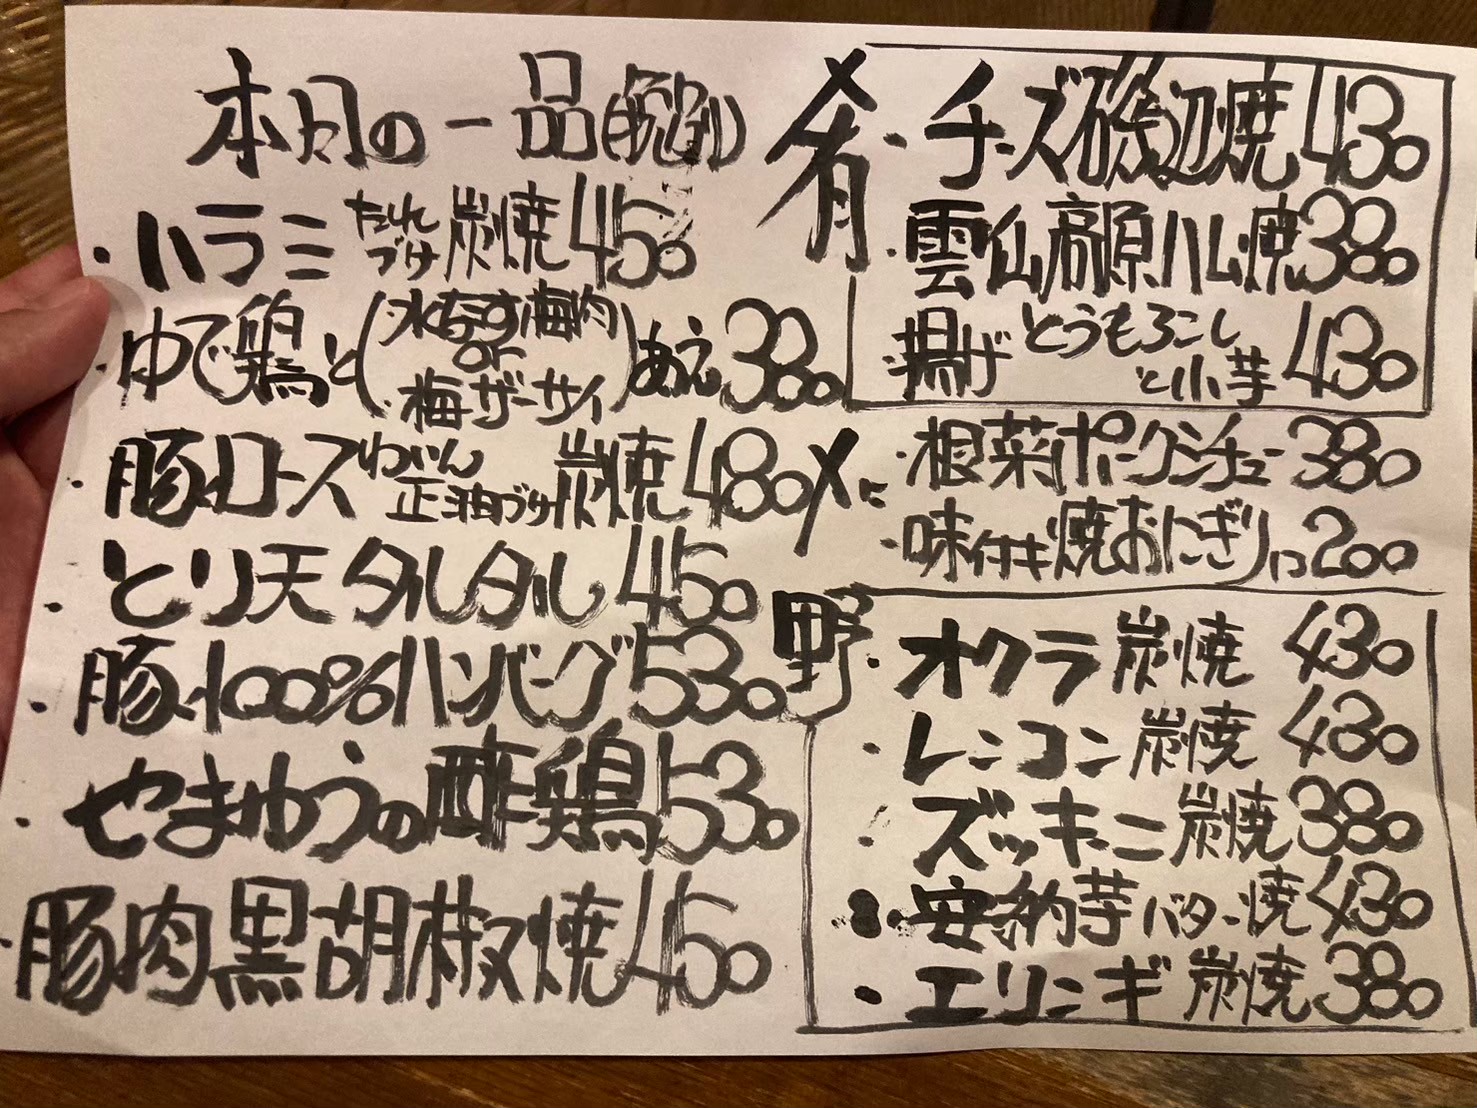 本月の一品(税別)
・ハラミ たれづけ 炭焼 450
・ゆで鶏と(水なす梅肉 or 梅ザーサイ)あえ 380
・豚ロース わいん正油づけ 炭焼 480
・とり天タルタル 450
・豚100%ハンバーグ 530
・やまゆうの酢鶏 530
・豚肉黒胡椒焼 450
肴
・チーズ磯辺焼 430
・雲仙高原ハム焼 380
・揚げ とうもろこしと小芋 430
〆に
・根菜ポークシチュー 380
・味付き焼おにぎり 1コ 200
野
・オクラ炭焼 430
・レンコン炭焼 430
・ズッキーニ炭焼 380
・安納芋バター焼 430
・エリンギ炭焼 380